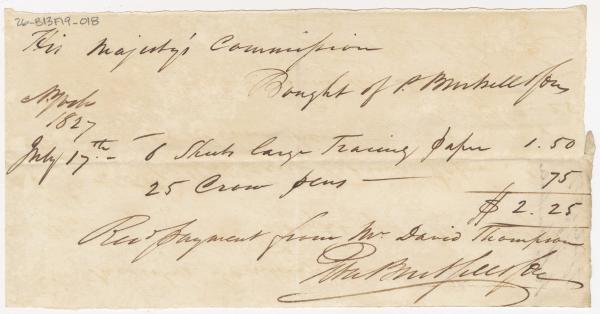 26-B13F19-018
His Majesty's Commission
Bought of P. Burtsell & Son
N. York
1827
July 17th - 6 Sheets large Tracing paper 1.50
25 Crow pens — 75
$ 2.25
Recd payment from Mr David Thompson
Peter Burtsell & Son